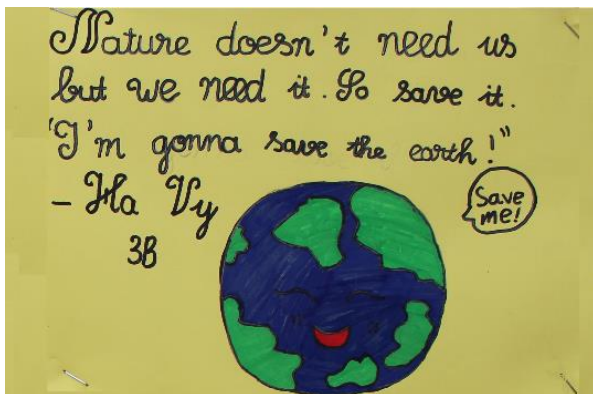 Nature doesn't need us
but we need it. So save it.
"I'm gonna save the earth!"
- Ha Vy
3B
Save
me!